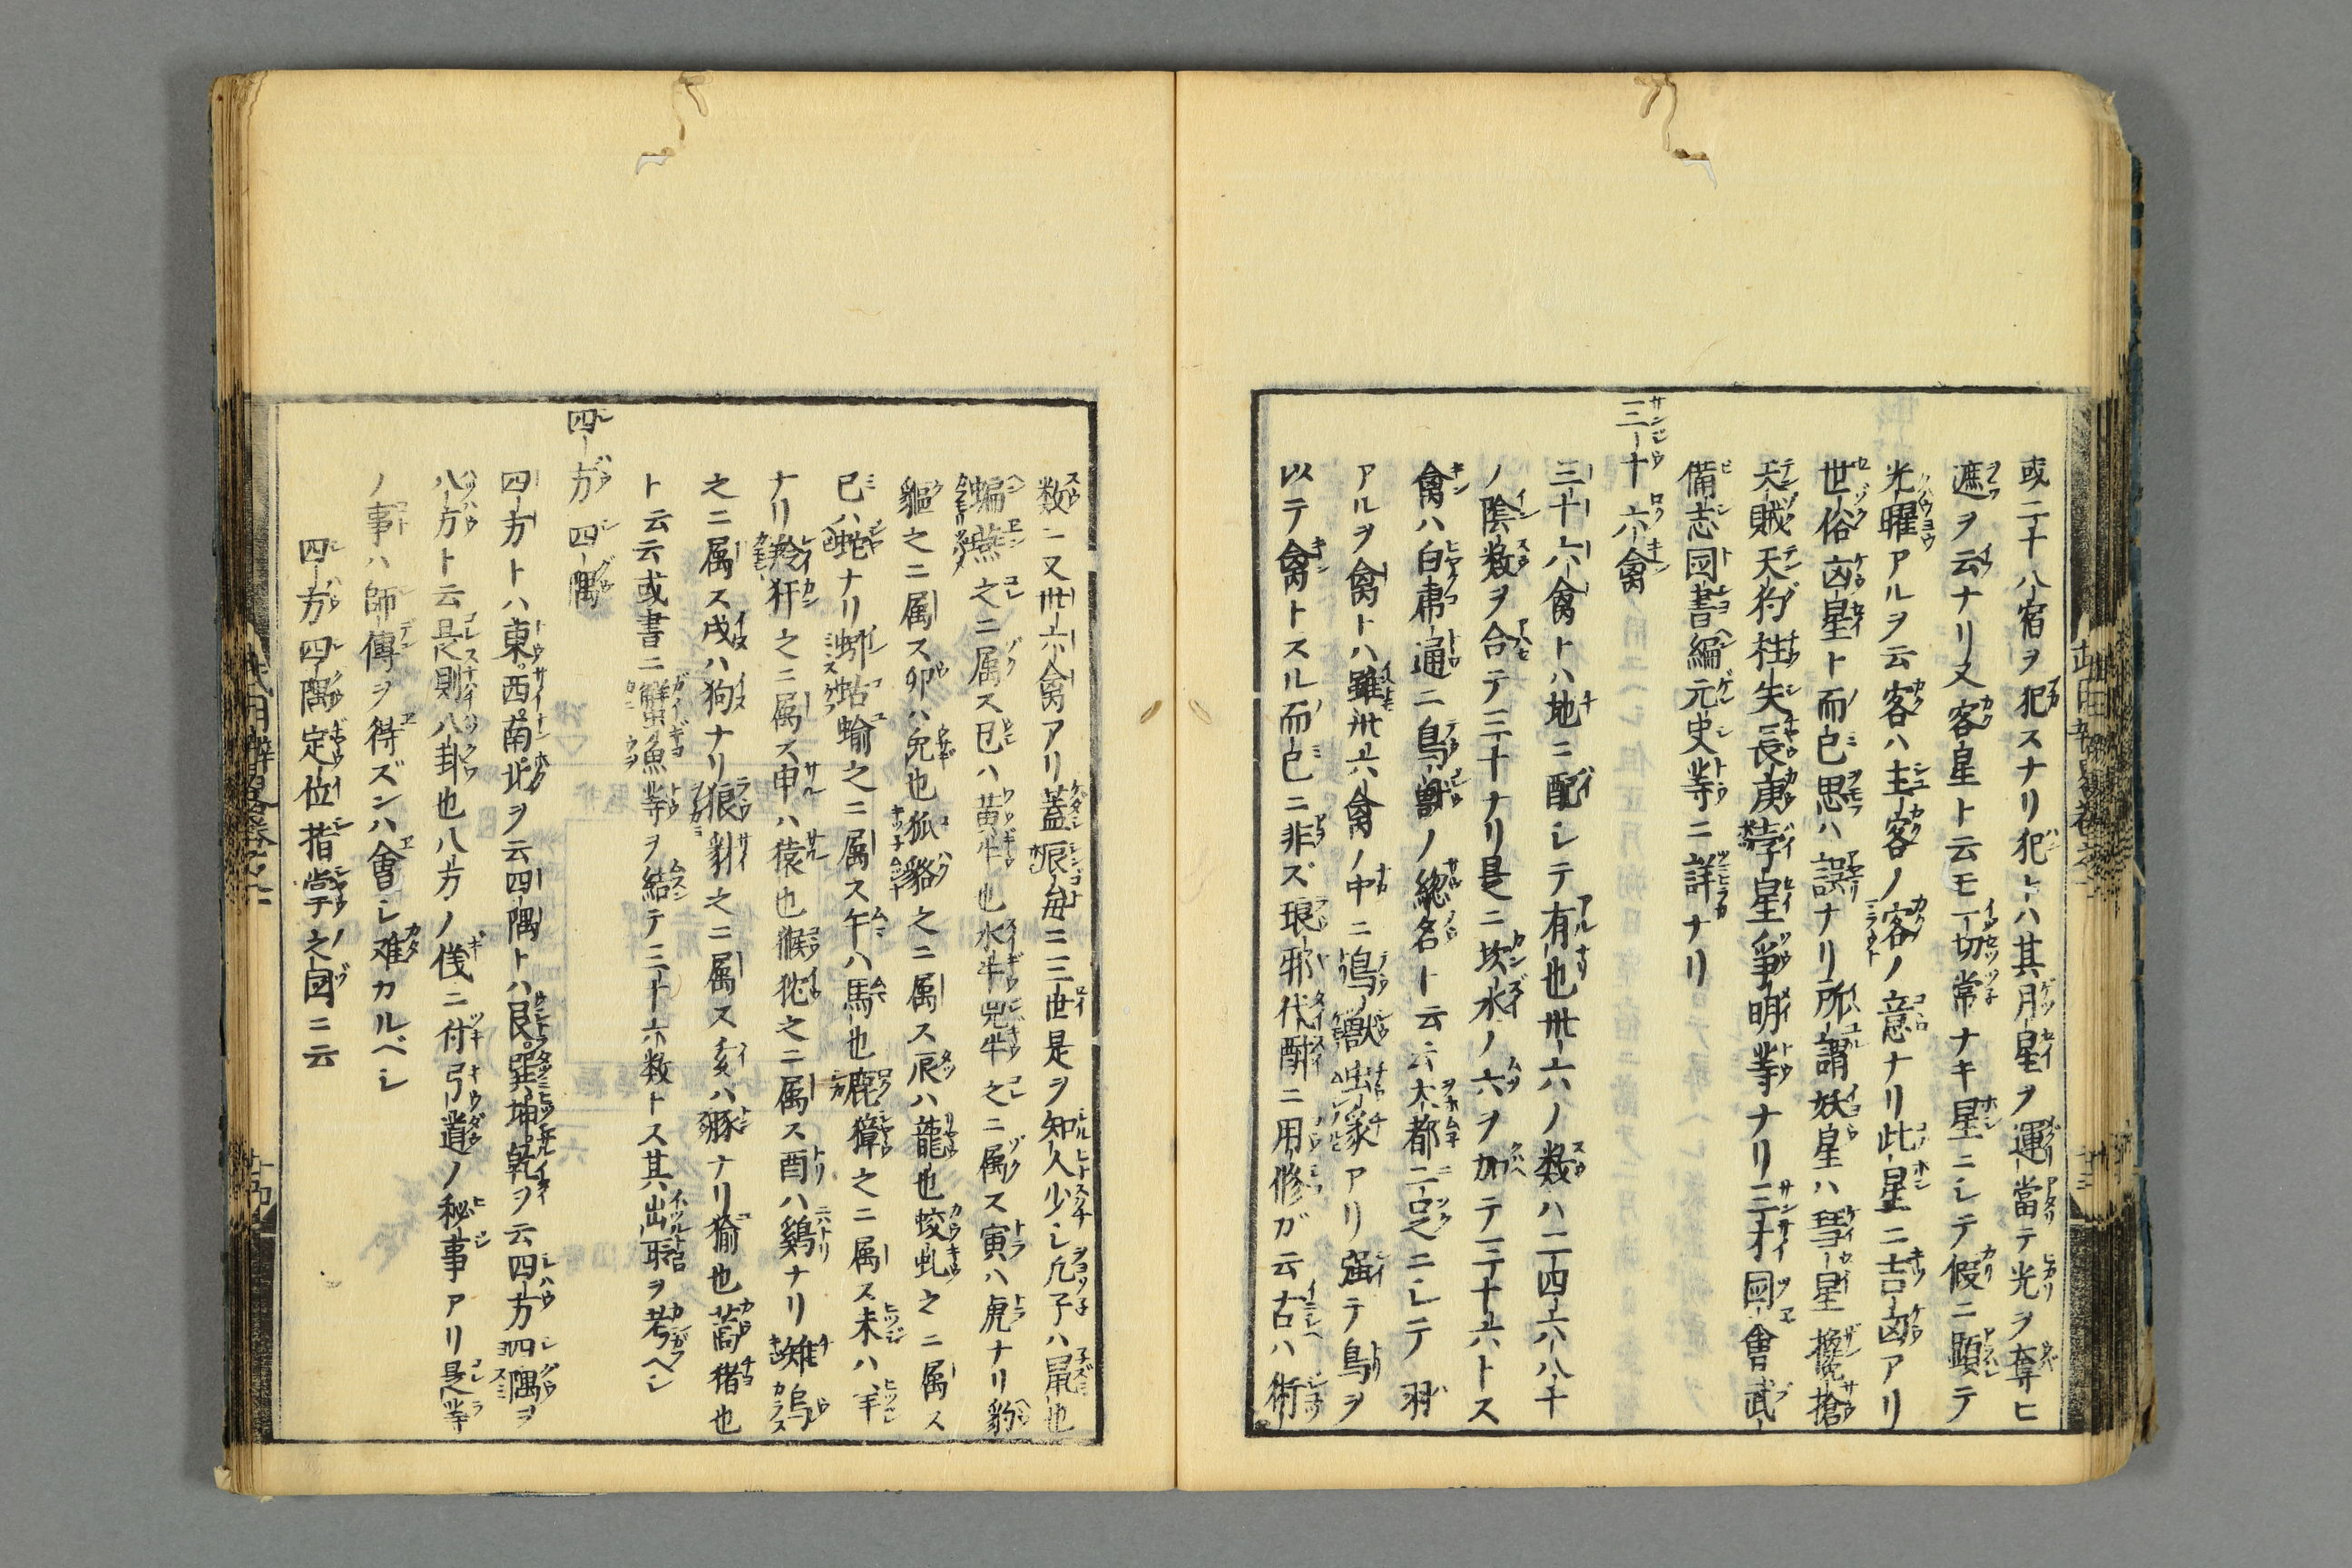 或二十八宿ヲ犯スナリ犯トハ其月星ヲ運當テ光ヲ奪ヒ
遮ヲ云ナリ又客星ト云モ一切常ナキ星ニシテ假ニ顕テ
光曜アルヲ云客ハ主客ノ客ノ意ナリ此星ニ吉凶アリ
世俗凶星ト而已思ハ誤ナリ所謂妖星ハ彗星攙搶
天賊天狗枉矢長庚孛星爭明等ナリ三才圖會武
備志圖書編元史等ニ詳ナリ
三十六禽
三十六禽トハ地ニ配シテ有也卅六ノ数ハ二四六八十
ノ陰数ヲ合テ三十ナリ是ニ坎水ノ六ヲ加テ三十六トス
禽ハ白虎通ニ鳥獸ノ総名ト云云大都二足ニシテ羽
アルヲ禽トハ雖卅六禽ノ中ニ鳥獸虫豕アリ強テ鳥ヲ
以テ禽トスル而已ニ非ズ琅邪代醉ニ用修ガ云古ハ術
数ニ又卅六禽アリ蓋辰毎ニ三世是ヲ知人少シ凢子ハ鼠也
蝙蝠之ニ属ス丑ハ黄牛也水牛兕牛之ニ属ス寅ハ虎ナリ豹
貙之ニ属ス卯ハ兎也狐貉之ニ属ス辰ハ龍也蛟虬之ニ属ス
巳ハ蛇ナリ蚓蛄蝓之ニ属ス午ハ馬也鹿獐之ニ属ス未ハ羊
ナリ羚犴之ニ属ス申ハ猿也猴狖之ニ属ス酉ハ鷄ナリ雉烏
之ニ属ス戌ハ狗ナリ狼豺之ニ属ス亥ハ豚ナリ㺄也蒿猪也
ト云云或書ニ蟹魚等ヲ結テ三十六数トス其出所ヲ考ベシ
四方四隅
四方トハ東西南北ヲ云四隅トハ艮巽坤乾ヲ云四方四隅ヲ
八方ト云是則八卦也八方ノ儀ニ付弓道ノ秘事アリ是等
ノ事ハ師傳ヲ得ズンハ會シ难カルベシ
四方四隅定位指掌之図ニ云